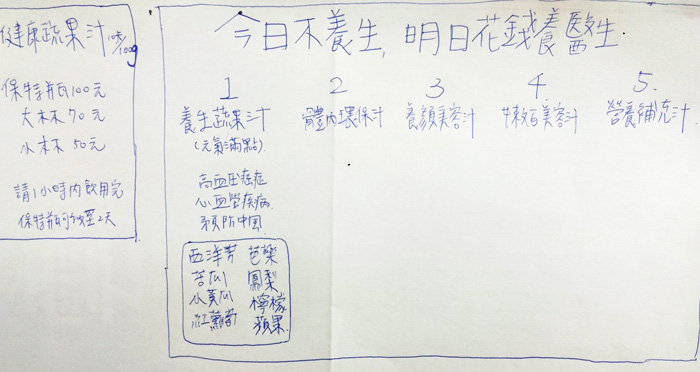 健康蔬果汁
保特瓶100元
大杯70元
小杯50元
請1小時內飲用完
保特瓶可放至2天
今日不養生, 明日花錢養醫生.
1
養生蔬果汁
(元氣滿點)
高血压癌症
心血管疾病
預防中風
西洋芹 芭樂
苦瓜 鳳梨
小黃瓜 檸檬
紅蘿蔔 蘋果
2
體內環保汁
3
養顏美容汁
4.
美容汁
5.
營養補充汁